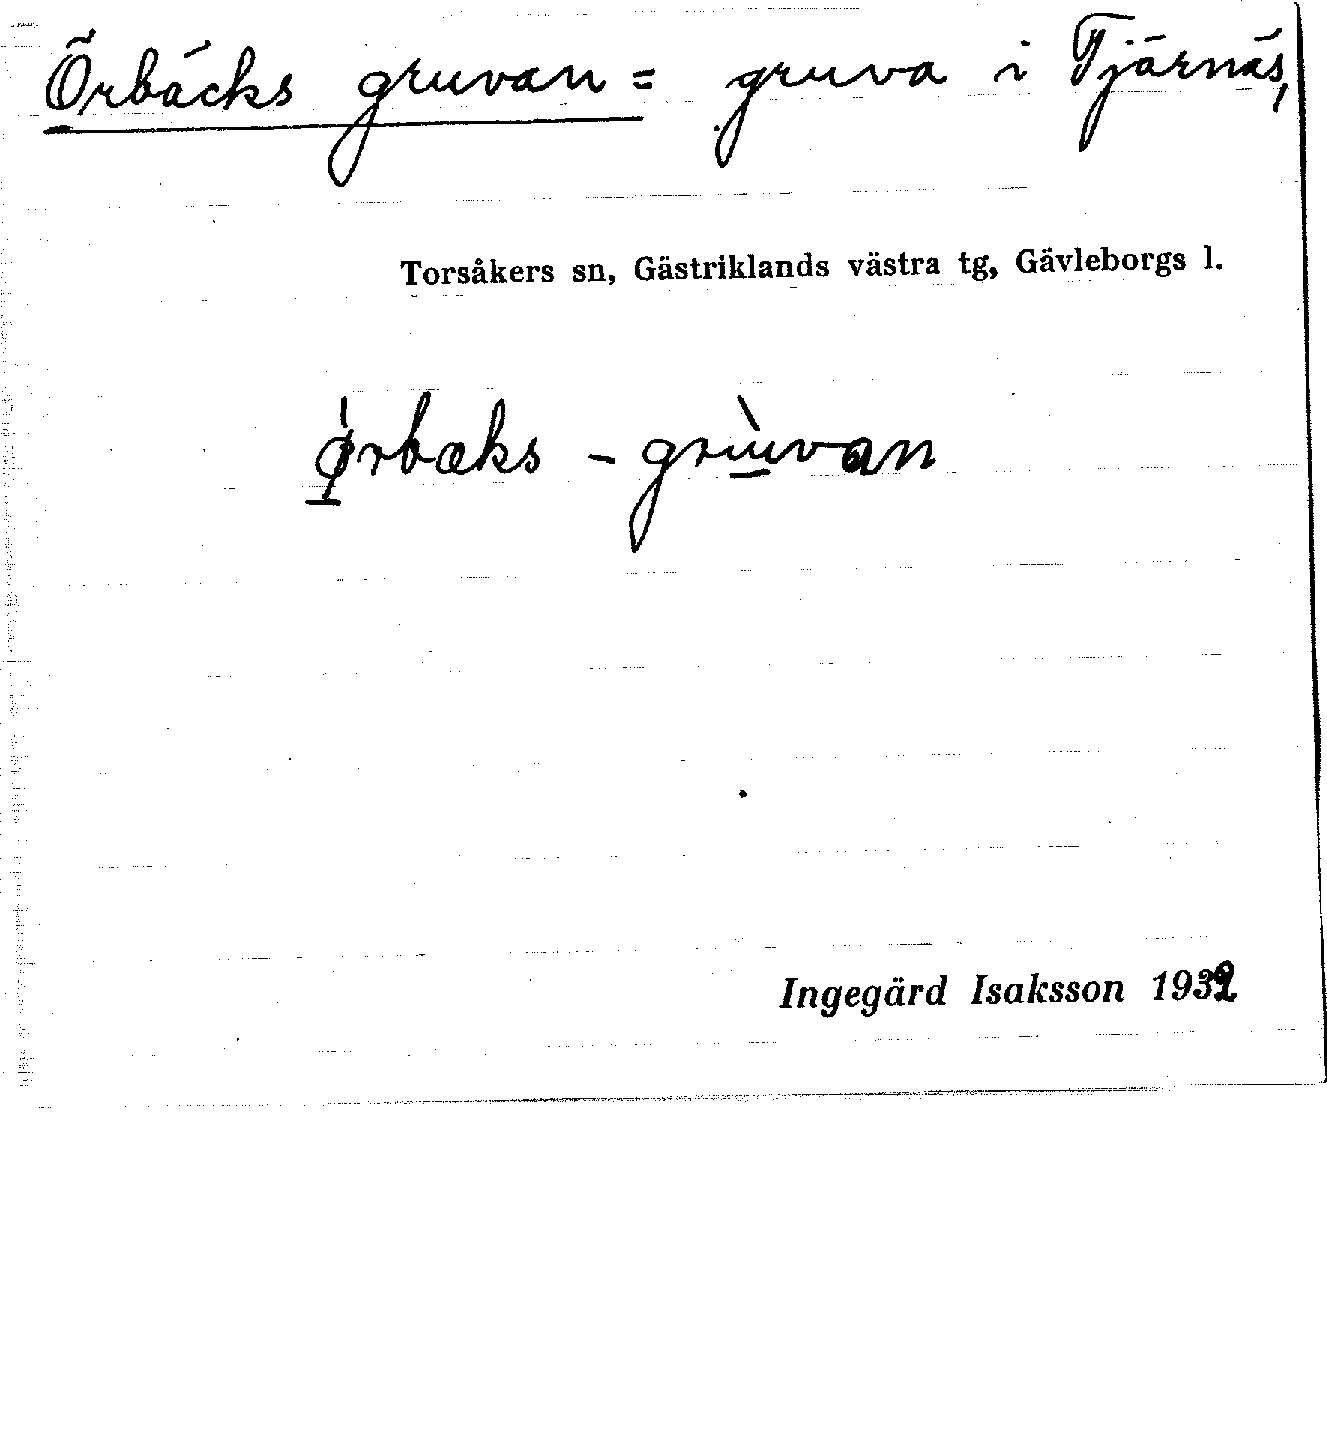 Örbäcks gruvan = gruva i Tjärnäs,
Torsåkers sn, Gästriklands västra tg, Gävleborgs l.
ø̀rbæks - grùvan
Ingegärd Isaksson 1932